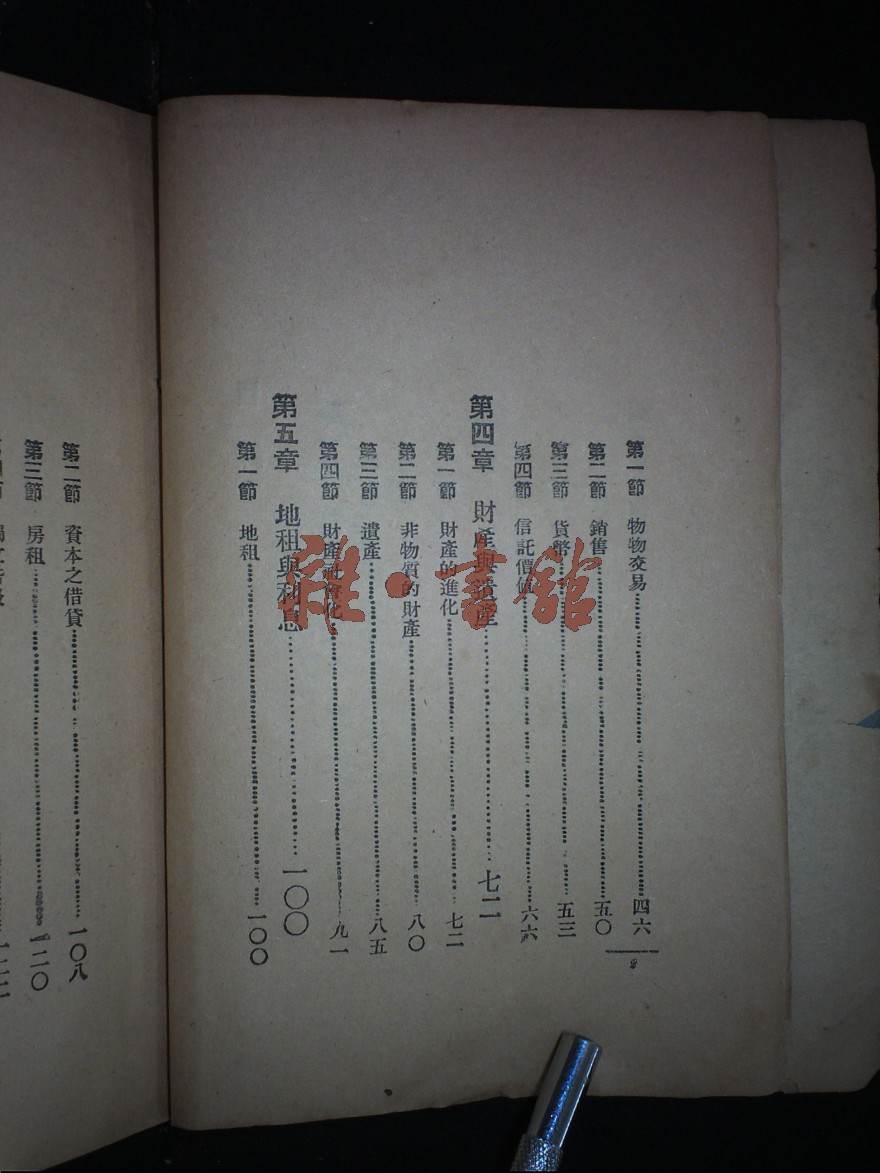 第一節 物物交易 四六
第二節 銷售 五〇
第三節 貨幣 五三
第四節 信託價値 六六
第四章 財產與遺產 七二
第一節 財產的進化 七二
第二節 非物質的財產 八〇
第三節 遺產 八五
第四節 財產社會化 九一
第五章 地租與利息 一〇〇
第一節 地租 一〇〇
第二節 資本之借貸 一〇八
第三節 房租 一二〇
雜·書館